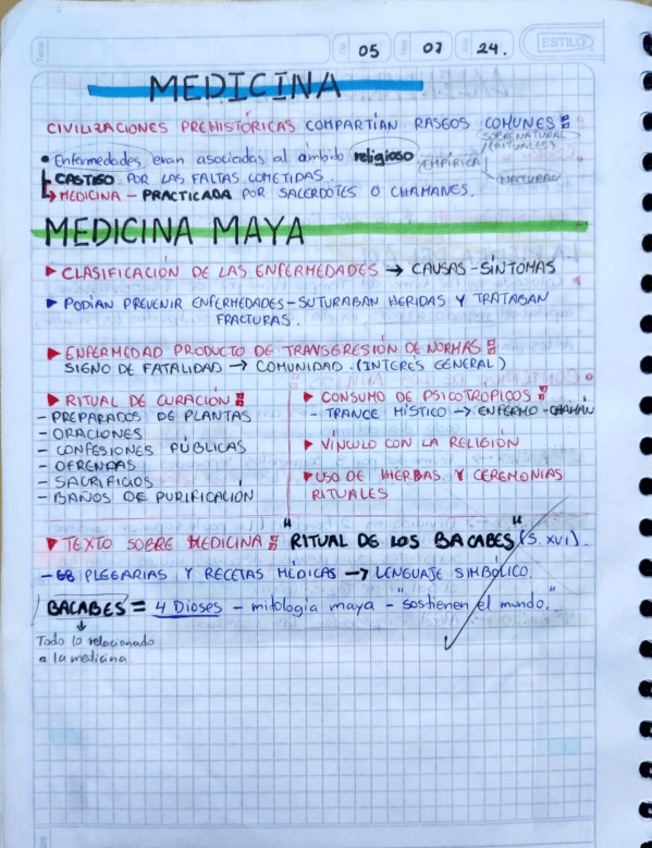 Tema
Día 05 Mes 07 Año 24. ESTILO
MEDICINA
CIVILIZACIONES PREHISTÓRICAS COMPARTÍAN RASGOS COMUNES:
SOBRENATURAL
(RITUALES)
• Enfermedades eran asociadas al ámbito religioso
EMPÍRICA
NATURAL
CASTIGO POR LAS FALTAS COMETIDAS.
→ MEDICINA – PRACTICADA POR SACERDOTES O CHAMANES.
MEDICINA MAYA
▶ CLASIFICACIÓN DE LAS ENFERMEDADES → CAUSAS - SÍNTOMAS
▶ PODÍAN PREVENIR ENFERMEDADES - SUTURABAN HERIDAS Y TRATABAN
FRACTURAS.
▶ ENFERMEDAD PRODUCTO DE TRANSGRESIÓN DE NORMAS:
SIGNO DE FATALIDAD → COMUNIDAD. (INTERÉS GENERAL)
▶ RITUAL DE CURACIÓN:
– PREPARADOS DE PLANTAS
– ORACIONES
– CONFESIONES PÚBLICAS
– OFRENDAS
– SACRIFICIOS
– BAÑOS DE PURIFICACIÓN
▶ CONSUMO DE PSICOTROPICOS:
– TRANCE MÍSTICO → ENFERMO - CHAMÁN
▶ VÍNCULO CON LA RELIGIÓN
▶ USO DE HIERBAS Y CEREMONIAS
RITUALES
▼ TEXTO SOBRE MEDICINA: "RITUAL DE LOS BACABES" (S. XVI).
– 68 PLEGARIAS Y RECETAS MÉDICAS → LENGUAJE SIMBÓLICO.
BACABES = 4 Dioses – mitología maya – "sostienen el mundo."
↓
Todo lo relacionado
a la medicina